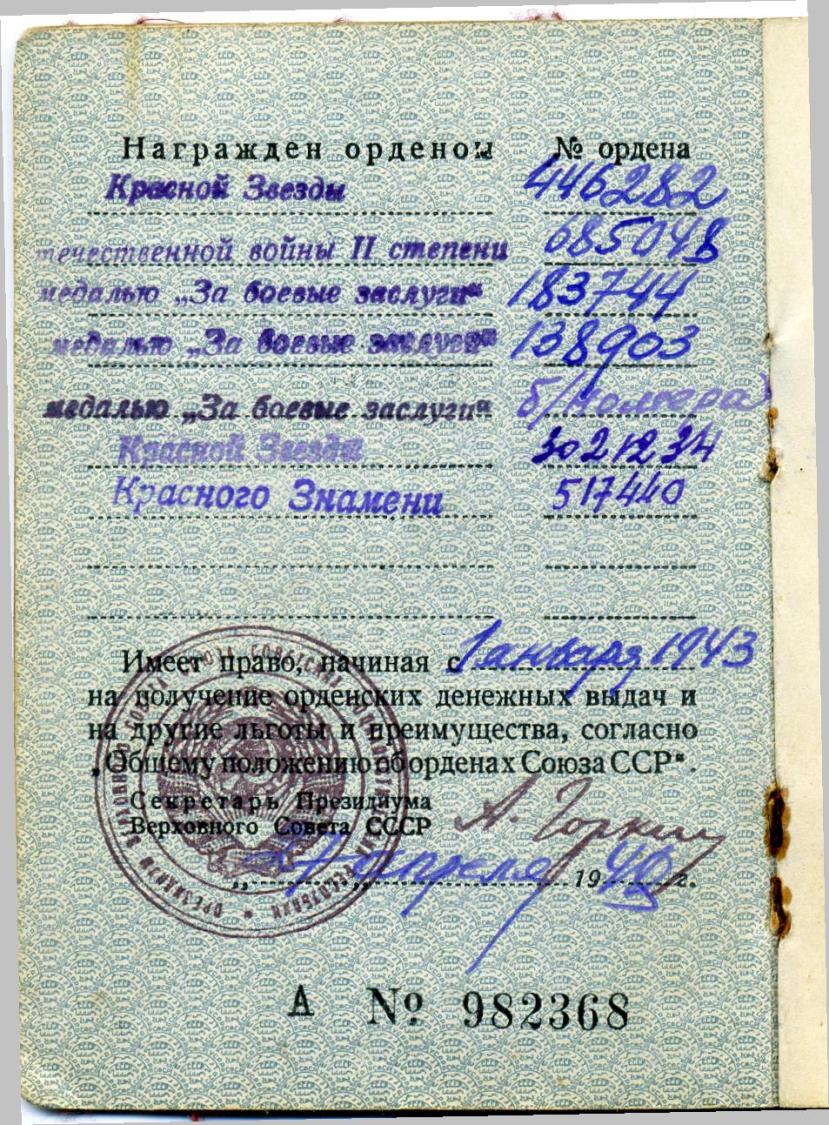 Награжден орденом № ордена
Красной Звезды 446282
течественной войны II степени 685048
медалью „За боевые заслуги“ 183744
медалью „За боевые заслуги“ 138903
медалью „За боевые заслуги“ б/номера
Красной Звезды 3021234
Красного Знамени 517440
Имеет право, начиная с 1 января 1943
на получение орденских денежных выдач и
на другие льготы и преимущества, согласно
„Общему положению об орденах Союза ССР“.
Секретарь Президиума
Верховного Совета СССР А. Горкин
„ 7 апреля 19 г.
А № 982368